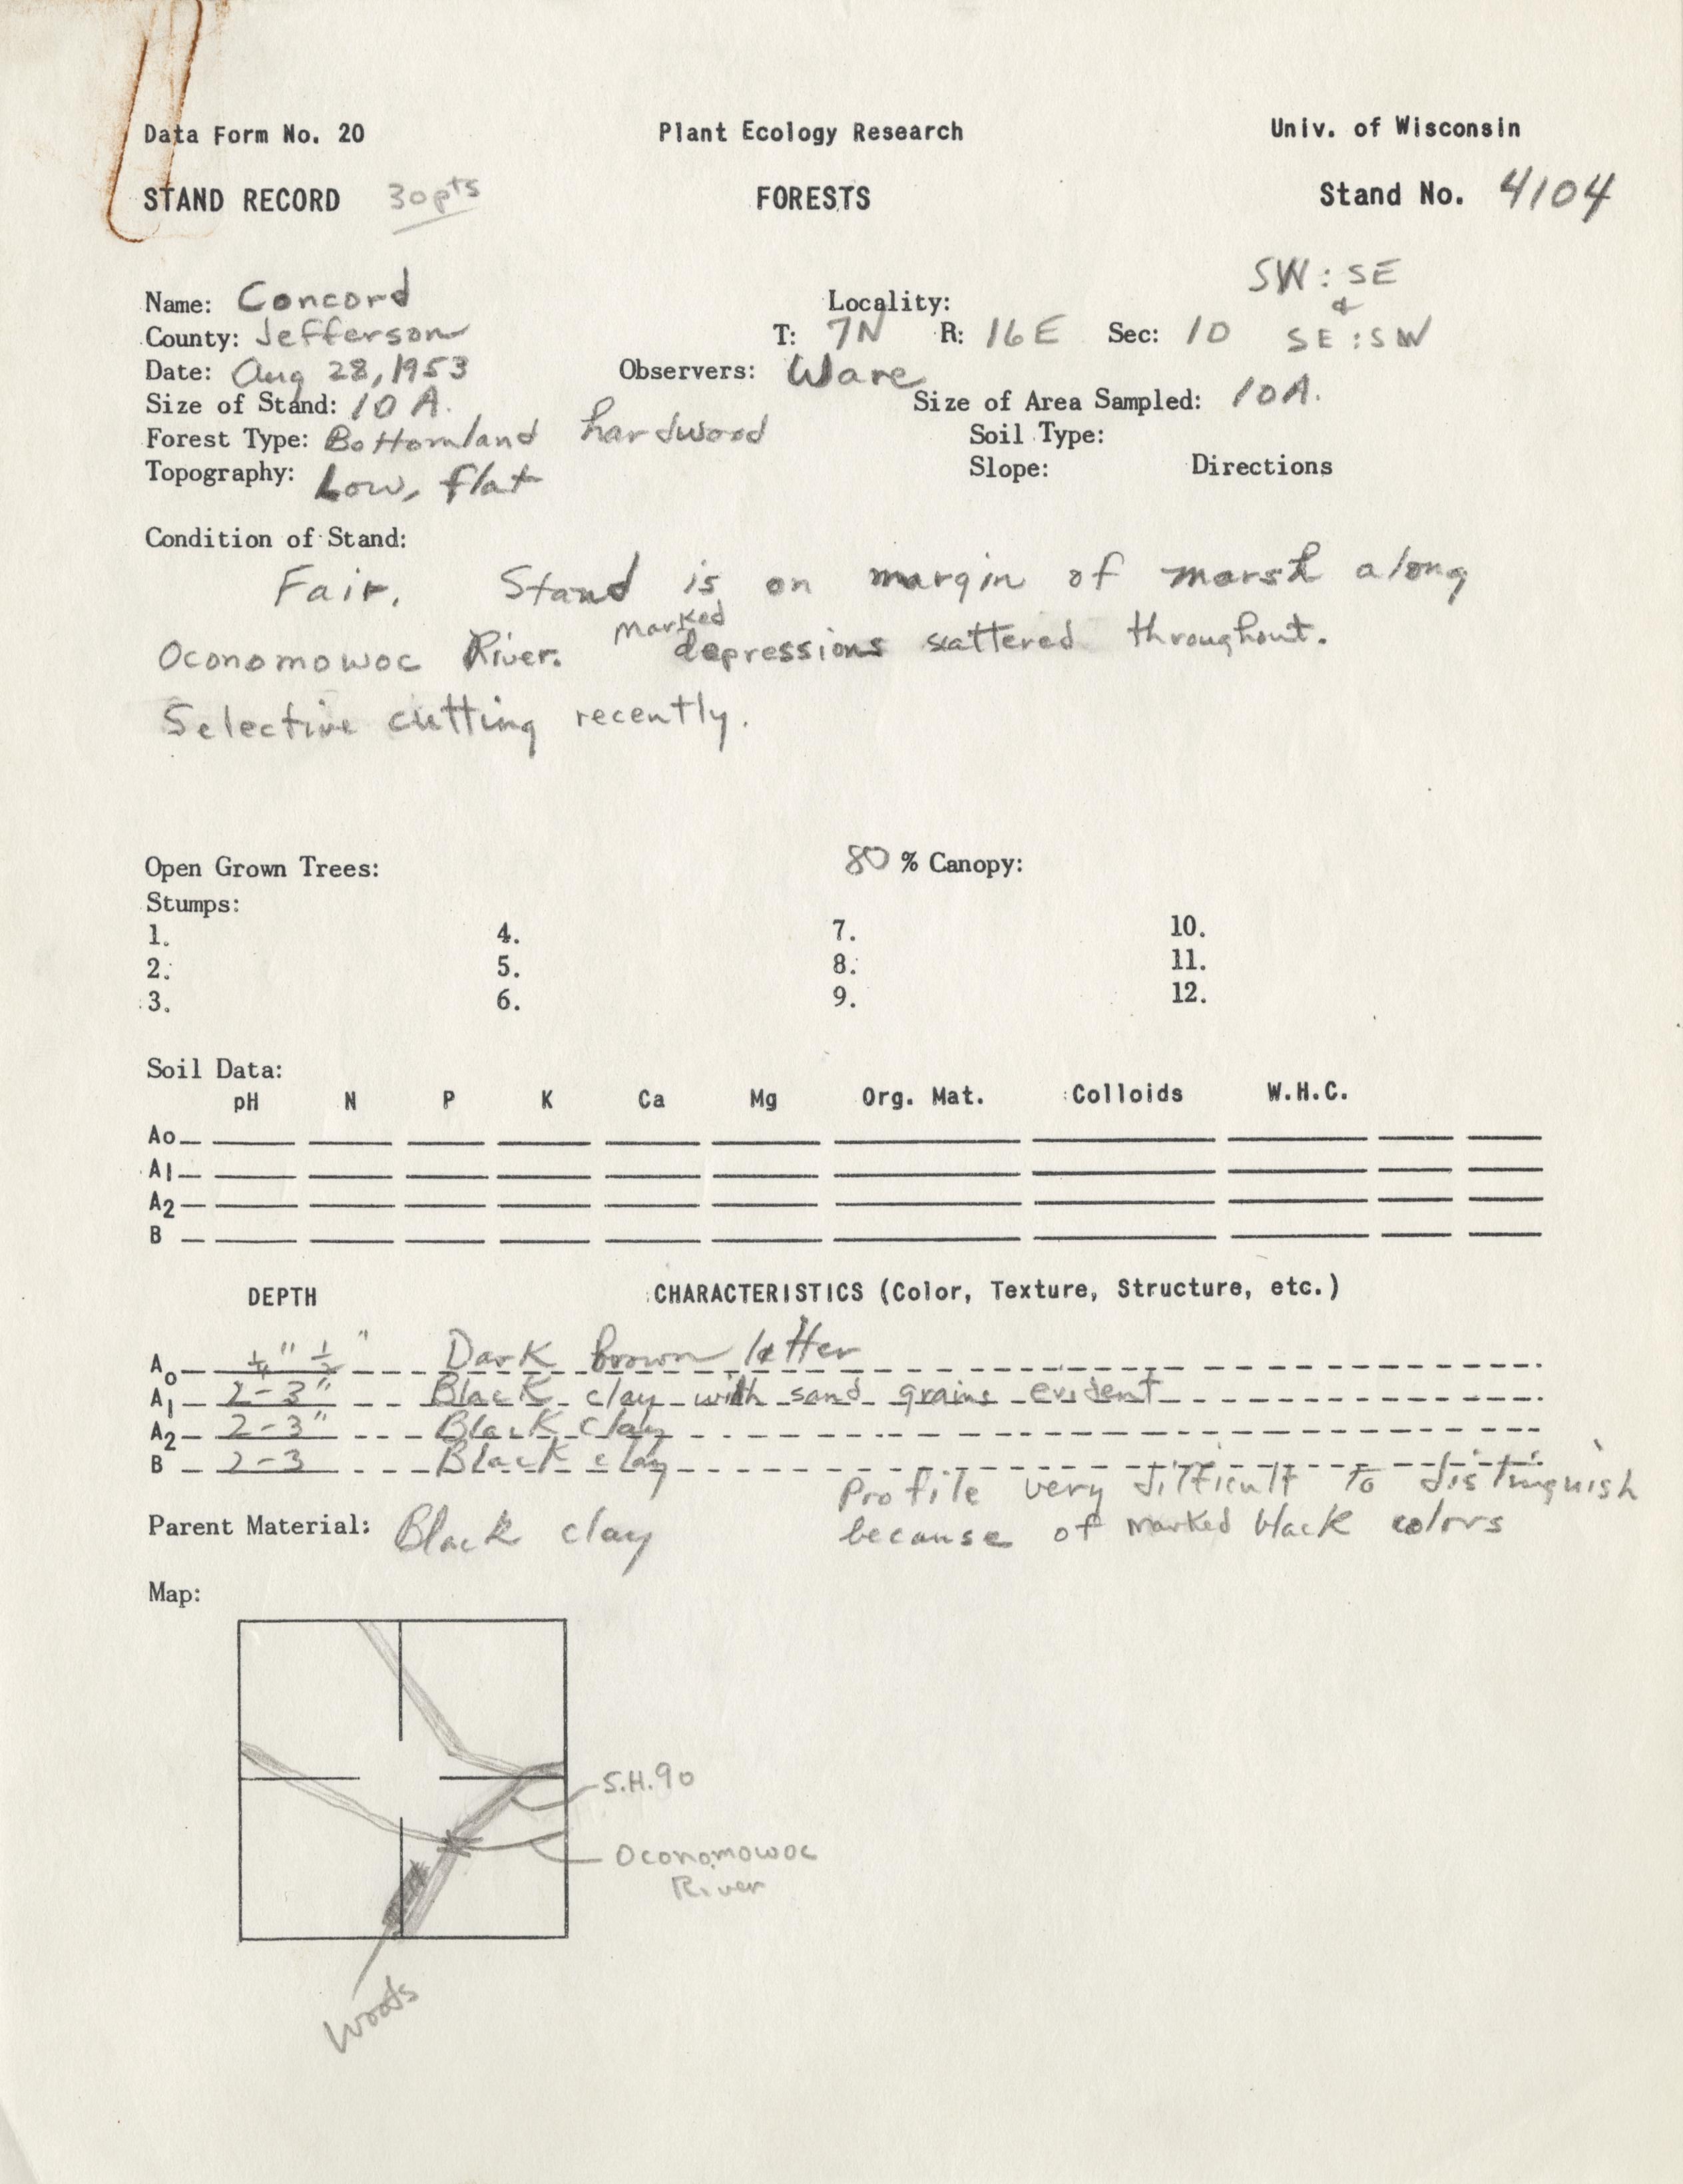 Data Form No. 20 Plant Ecology Research Univ. of Wisconsin
STAND RECORD 30 pts FORESTS Stand No. 4104
SW : SE
Name: Concord Locality: &
County: Jefferson T: 7N R: 16E Sec: 10 SE : SW
Date: Aug 28, 1953 Observers: Ware
Size of Stand: 10 A. Size of Area Sampled: 10A.
Forest Type: Bottomland hardwood Soil Type:
Topography: Low, flat Slope: Directions
Condition of Stand:
Fair. Stand is on margin of marsh along
Oconomowoc River. Marked depressions scattered throughout.
Selective cutting recently.
Open Grown Trees: 80 % Canopy:
Stumps:
1. 4. 7. 10.
2. 5. 8. 11.
3. 6. 9. 12.
Soil Data:
pH N P K Ca Mg Org. Mat. Colloids W.H.C.
Ao
A1
A2
B
DEPTH CHARACTERISTICS (Color, Texture, Structure, etc.)
Ao 1/4" 1/2" Dark brown litter
A1 2-3" Black clay with sand grains evident
A2 2-3" Black clay
B 2-3 Black clay
Profile very difficult to distinguish
Parent Material: Black clay because of marked black colors
Map:
S.H. 90
Oconomowoc
River
Woods